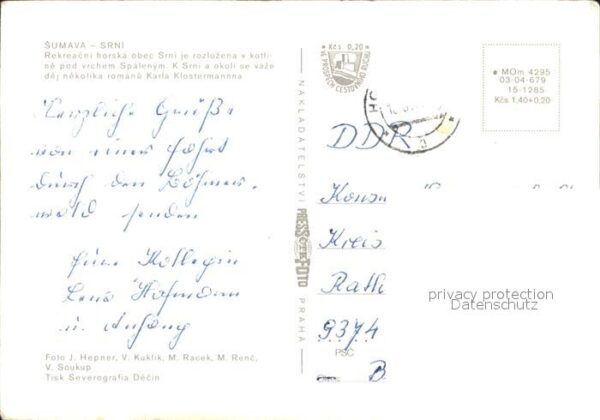 ŠUMAVA – SRNÍ
Rekreační horská obec Srní je rozložena v kotli-
ně pod vrchem Spáleným. K Srní a okolí se váže
děj několika románů Karla Klostermannna
Herzliche Grüße
von einer Fahrt
durch den Böhmer-
wald senden
Eure Kollegin
Lena Hofmann
u. Anhang
Foto J. Hepner, V. Kuklík, M. Racek, M. Renč,
V. Soukup
Tisk Severografia Děčín
NAKLADATELSTVÍ PRESSFOTO PRAHA
Kčs 0,20
VE PROSPĚCH CESTOVNÍHO RUCHU
MOm 4295
03-04-679
15-1285
Kčs 1,40+0,20
DDR
Konsu
Kreis
Rat
privacy protection
Datenschutz
9374
PSČ
B